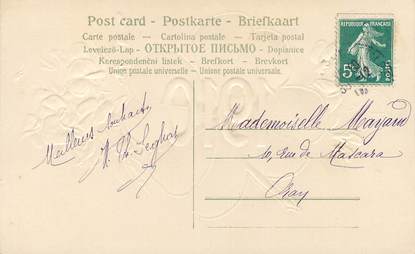 Post card - Postkarte - Briefkaart
Carte postale — Cartolina postale — Tarjeta postal
Levelező-Lap — ОТКРЫТОЕ ПИСЬМО — Dopisnice
Korespondenční listek — Brefkort — Brevkort
Union postale universelle — Unione postale universale
RÉPUBLIQUE FRANÇAISE
5c
POSTES
Meilleurs Souhaits
Mademoiselle Mayaud
10, rue de Mascara
Oran